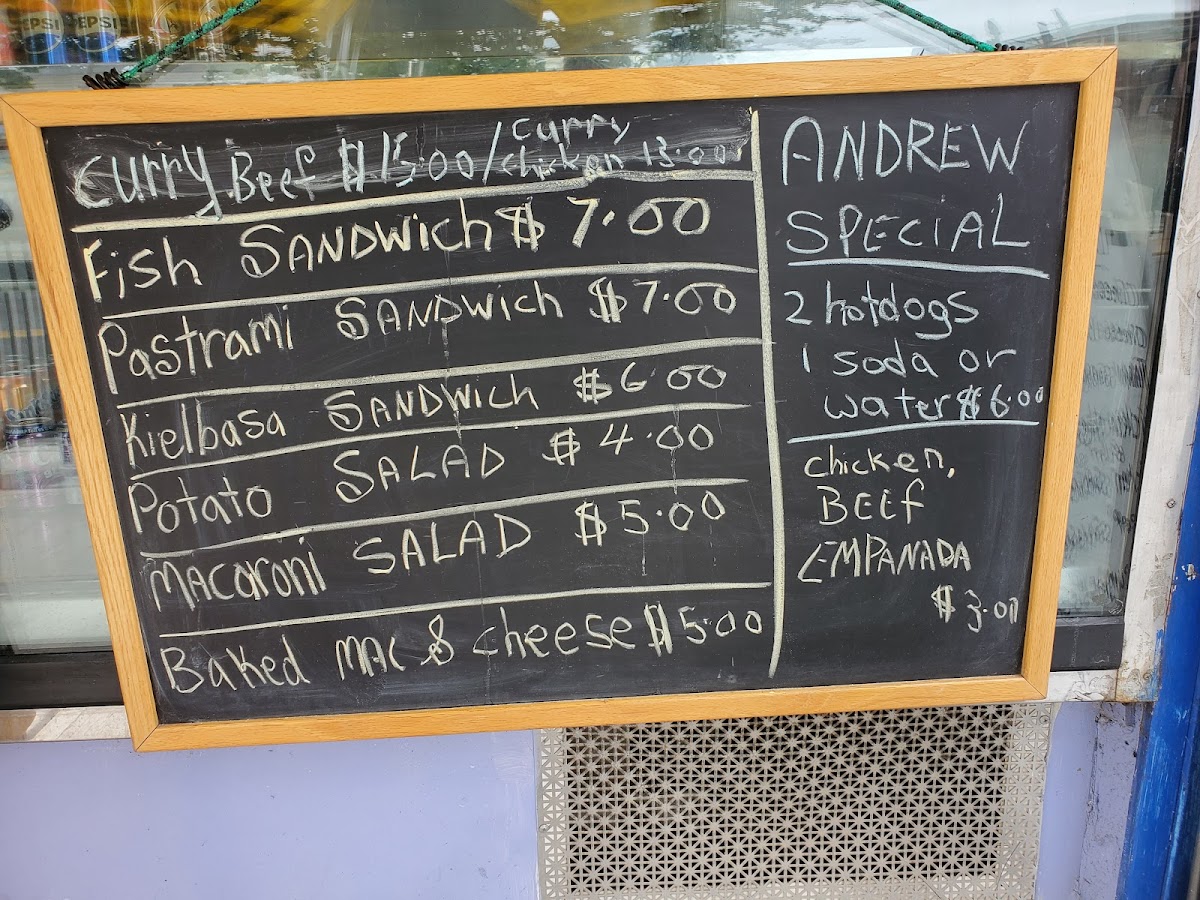 PEPSI PEPSI
Curry Beef $15.00/Curry chicken 13.00
Fish SANDWich $7.00
Pastrami SANDWich $7.00
Kielbasa SANDWich $6 00
Potato SALAD $4.00
MACaroni SALAD $5.00
Baked MAC & cheese $5.00
ANDREW
SPECIAL
2 hotdogs
1 soda or
water $6.00
chicken,
BEEf
EMPANADA
$3.00